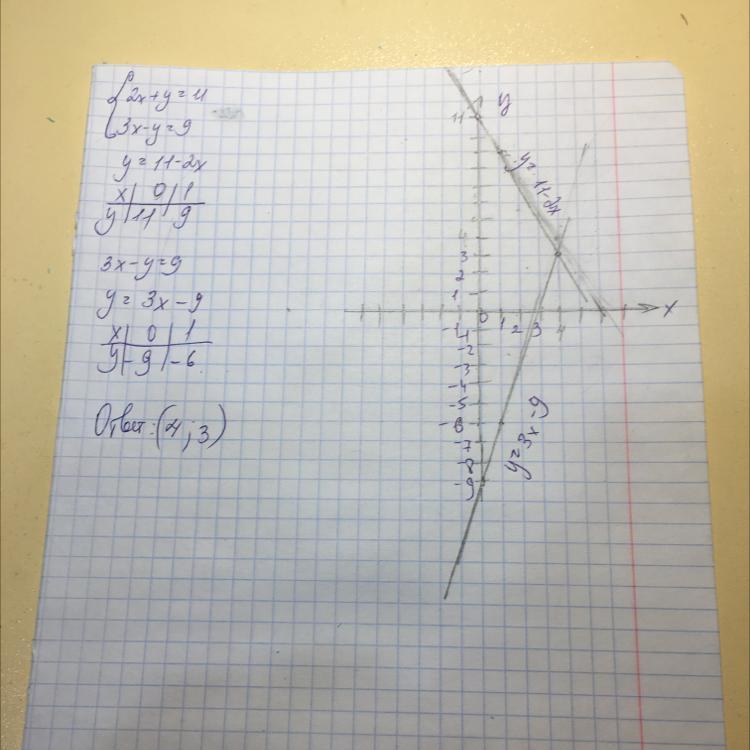 {2x+y=11
3x-y=9
y=11-2x
x | 0 | 1
y | 11 | 9
3x-y=9
y=3x-9
x | 0 | 1
y | -9 | -6
Ответ: (4; 3)
y
11
y=11-2x
3
2
1
0 1 2 3 4 x
-1
-2
-3
-4
-5
-6
-7
-8
-9
y=3x-9